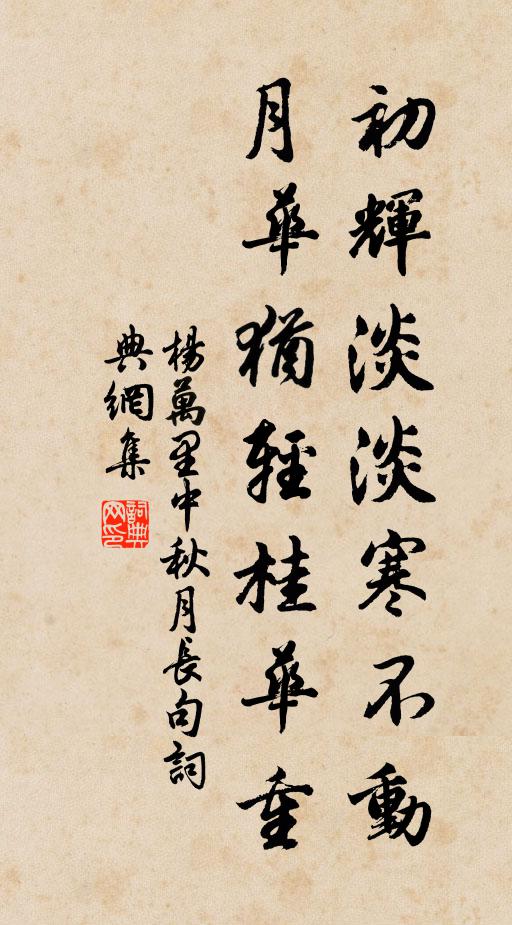 初輝淡淡寒不動
月華猶輕桂華重
楊萬里中秋月長句詞
典網集
詞典
网印